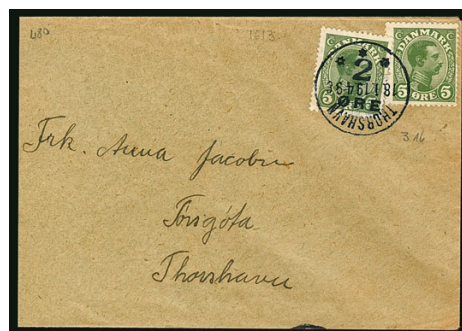 480
1613
DANMARK
5 ØRE 5
2 ØRE
THORSHAVN
18.1.19 4-9 E
314
Frk. Anna Jacobsen
Tórsgöta
Thorshavn